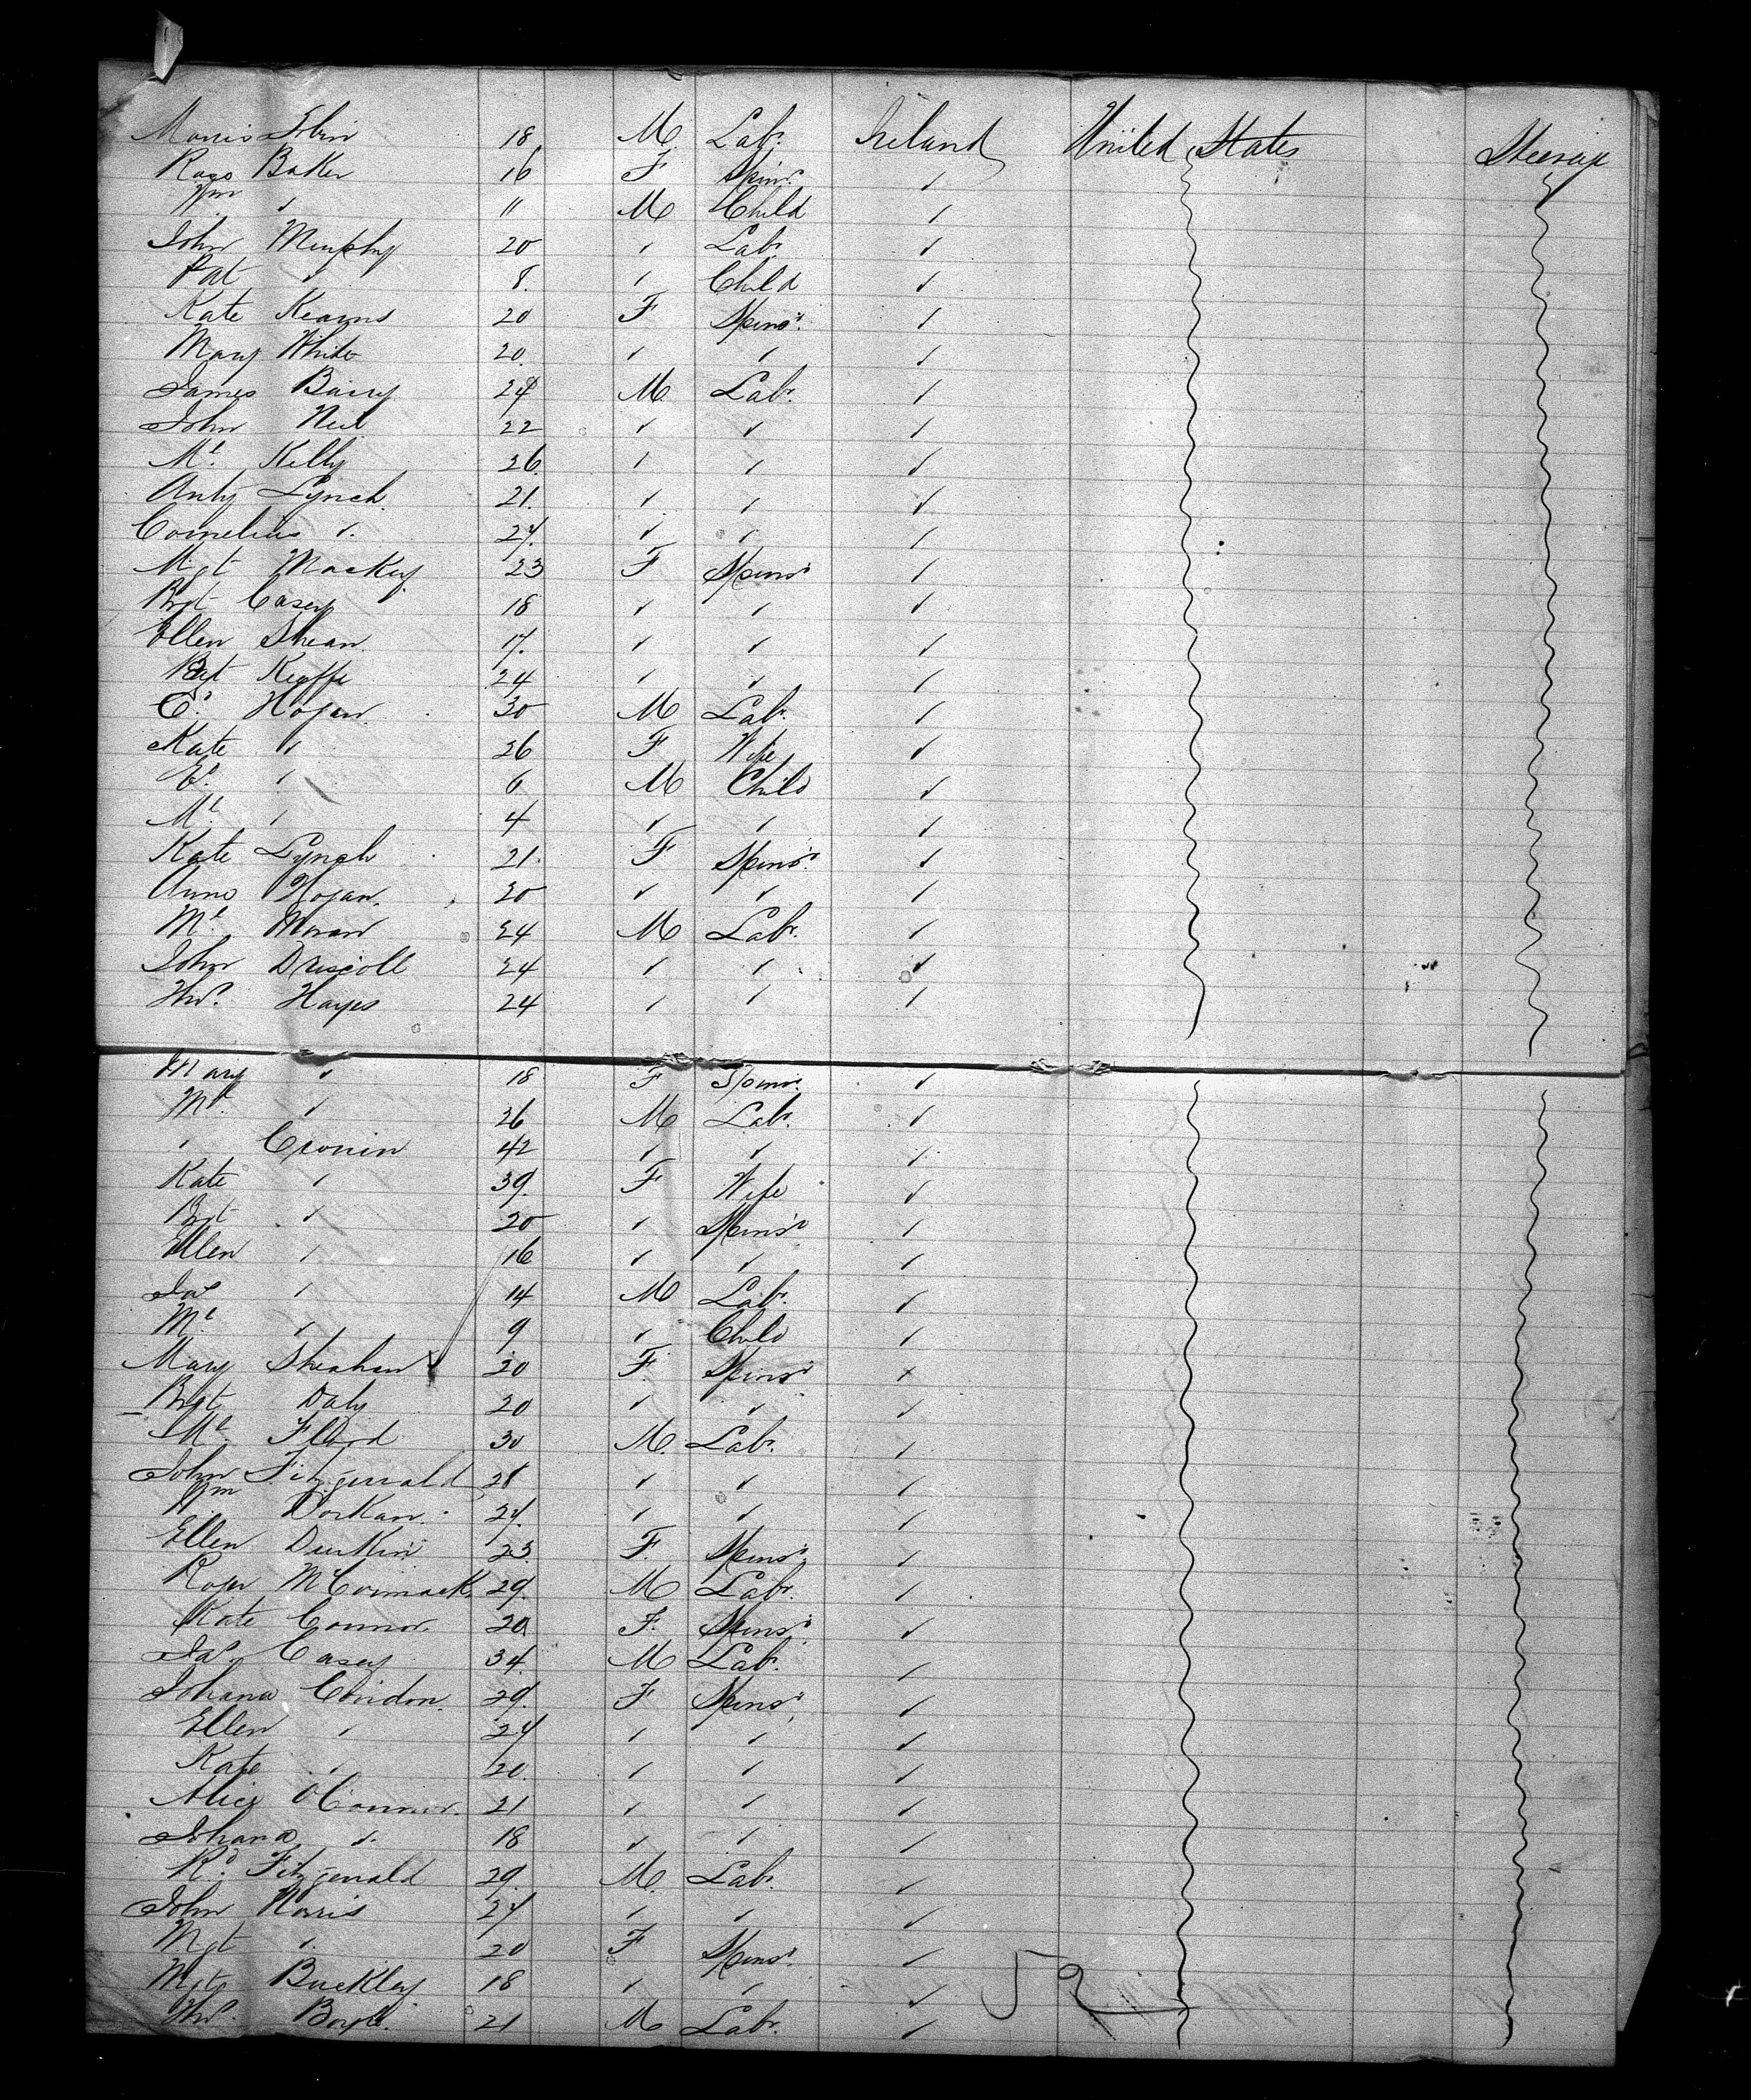 Morris Tobin 18 M. Labr. Ireland United States Steerage
Rose Baker 16 F Spinr. ✓
Wm ✓ 11 M Child ✓
John Murphy 20 ✓ Labr ✓
Pat ✓ 8. ✓ Child ✓
Kate Kearns 20 F Spinsr. ✓
Mary White 20. ✓ ✓ ✓
James Barry 24 M. Labr. ✓
John Neil 22 ✓ ✓ ✓
Ml. Kelly 26. ✓ ✓ ✓
Anty Lynch. 21. ✓ ✓ ✓
Cornelius ✓. 27. ✓ ✓ ✓
Mgt Mackey. 23 F Spinsr ✓
Brgt Casey 18 ✓ ✓ ✓
Ellen Shean. 17. ✓ ✓ ✓
Bgt Keaffe 24 ✓ ✓ ✓
Hogan. 30 M Labr. ✓
Kate ✓ 26 F Wife ✓
✓ 6 M Child ✓
Ml. ✓ 4 ✓ ✓ ✓
Kate Lynch 21. F Spinsr. ✓
Anne Hogan. 20 ✓ ✓ ✓
Ml. Moran 24 M Labr. ✓
John Driscoll 24 ✓ ✓ ✓
Thos. Hayes 24 ✓ ✓ ✓
Mary ✓ 18 F Spinsr. ✓
Ml. ✓ 26 M Labr. ✓
✓ Cronin 42 ✓ ✓ ✓
Kate ✓ 39. F Wife ✓
Brgt ✓ 20 ✓ Spinsr ✓
Ellen ✓ 16 ✓ ✓ ✓
Jas ✓ 14 M Labr. ✓
Ml. ✓ 9 ✓ Child ✓
Mary Sheahan 20 F. Spinsr ✓
Brgt Daly 20 ✓ ✓ ✓
Ml. 30 M. Labr. ✓
John Fitzgerald 21 ✓ ✓ ✓
Wm Dorkan. 27. ✓ ✓ ✓
Ellen Durkin 23. F. Spinsr. ✓
Roger McCormack 29. M Labr. ✓
Kate Connor. 20 F. Spinsr. ✓
Jas. Casey 34. M Labr. ✓
Johana Condon. 29. F Spinsr. ✓
Ellen ✓ 27 ✓ ✓ ✓
Kate ✓ 20. ✓ ✓ ✓
Alice O'Connor. 21 ✓ ✓ ✓
Johana ✓. 18 ✓ ✓ ✓
Rd. Fitzgerald 29. M. Labr. ✓
John Norris 27 ✓ ✓ ✓
Mgt ✓. 20 F Spinsr. ✓
Mgt Buckley 18 ✓ ✓ ✓ 52
Thos. Boyle. 21 M Labr. ✓